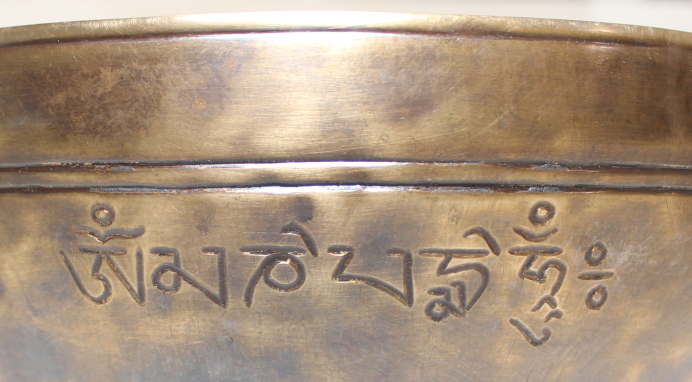 ཨོཾམཎིཔདྨེཧཱུྃ༔